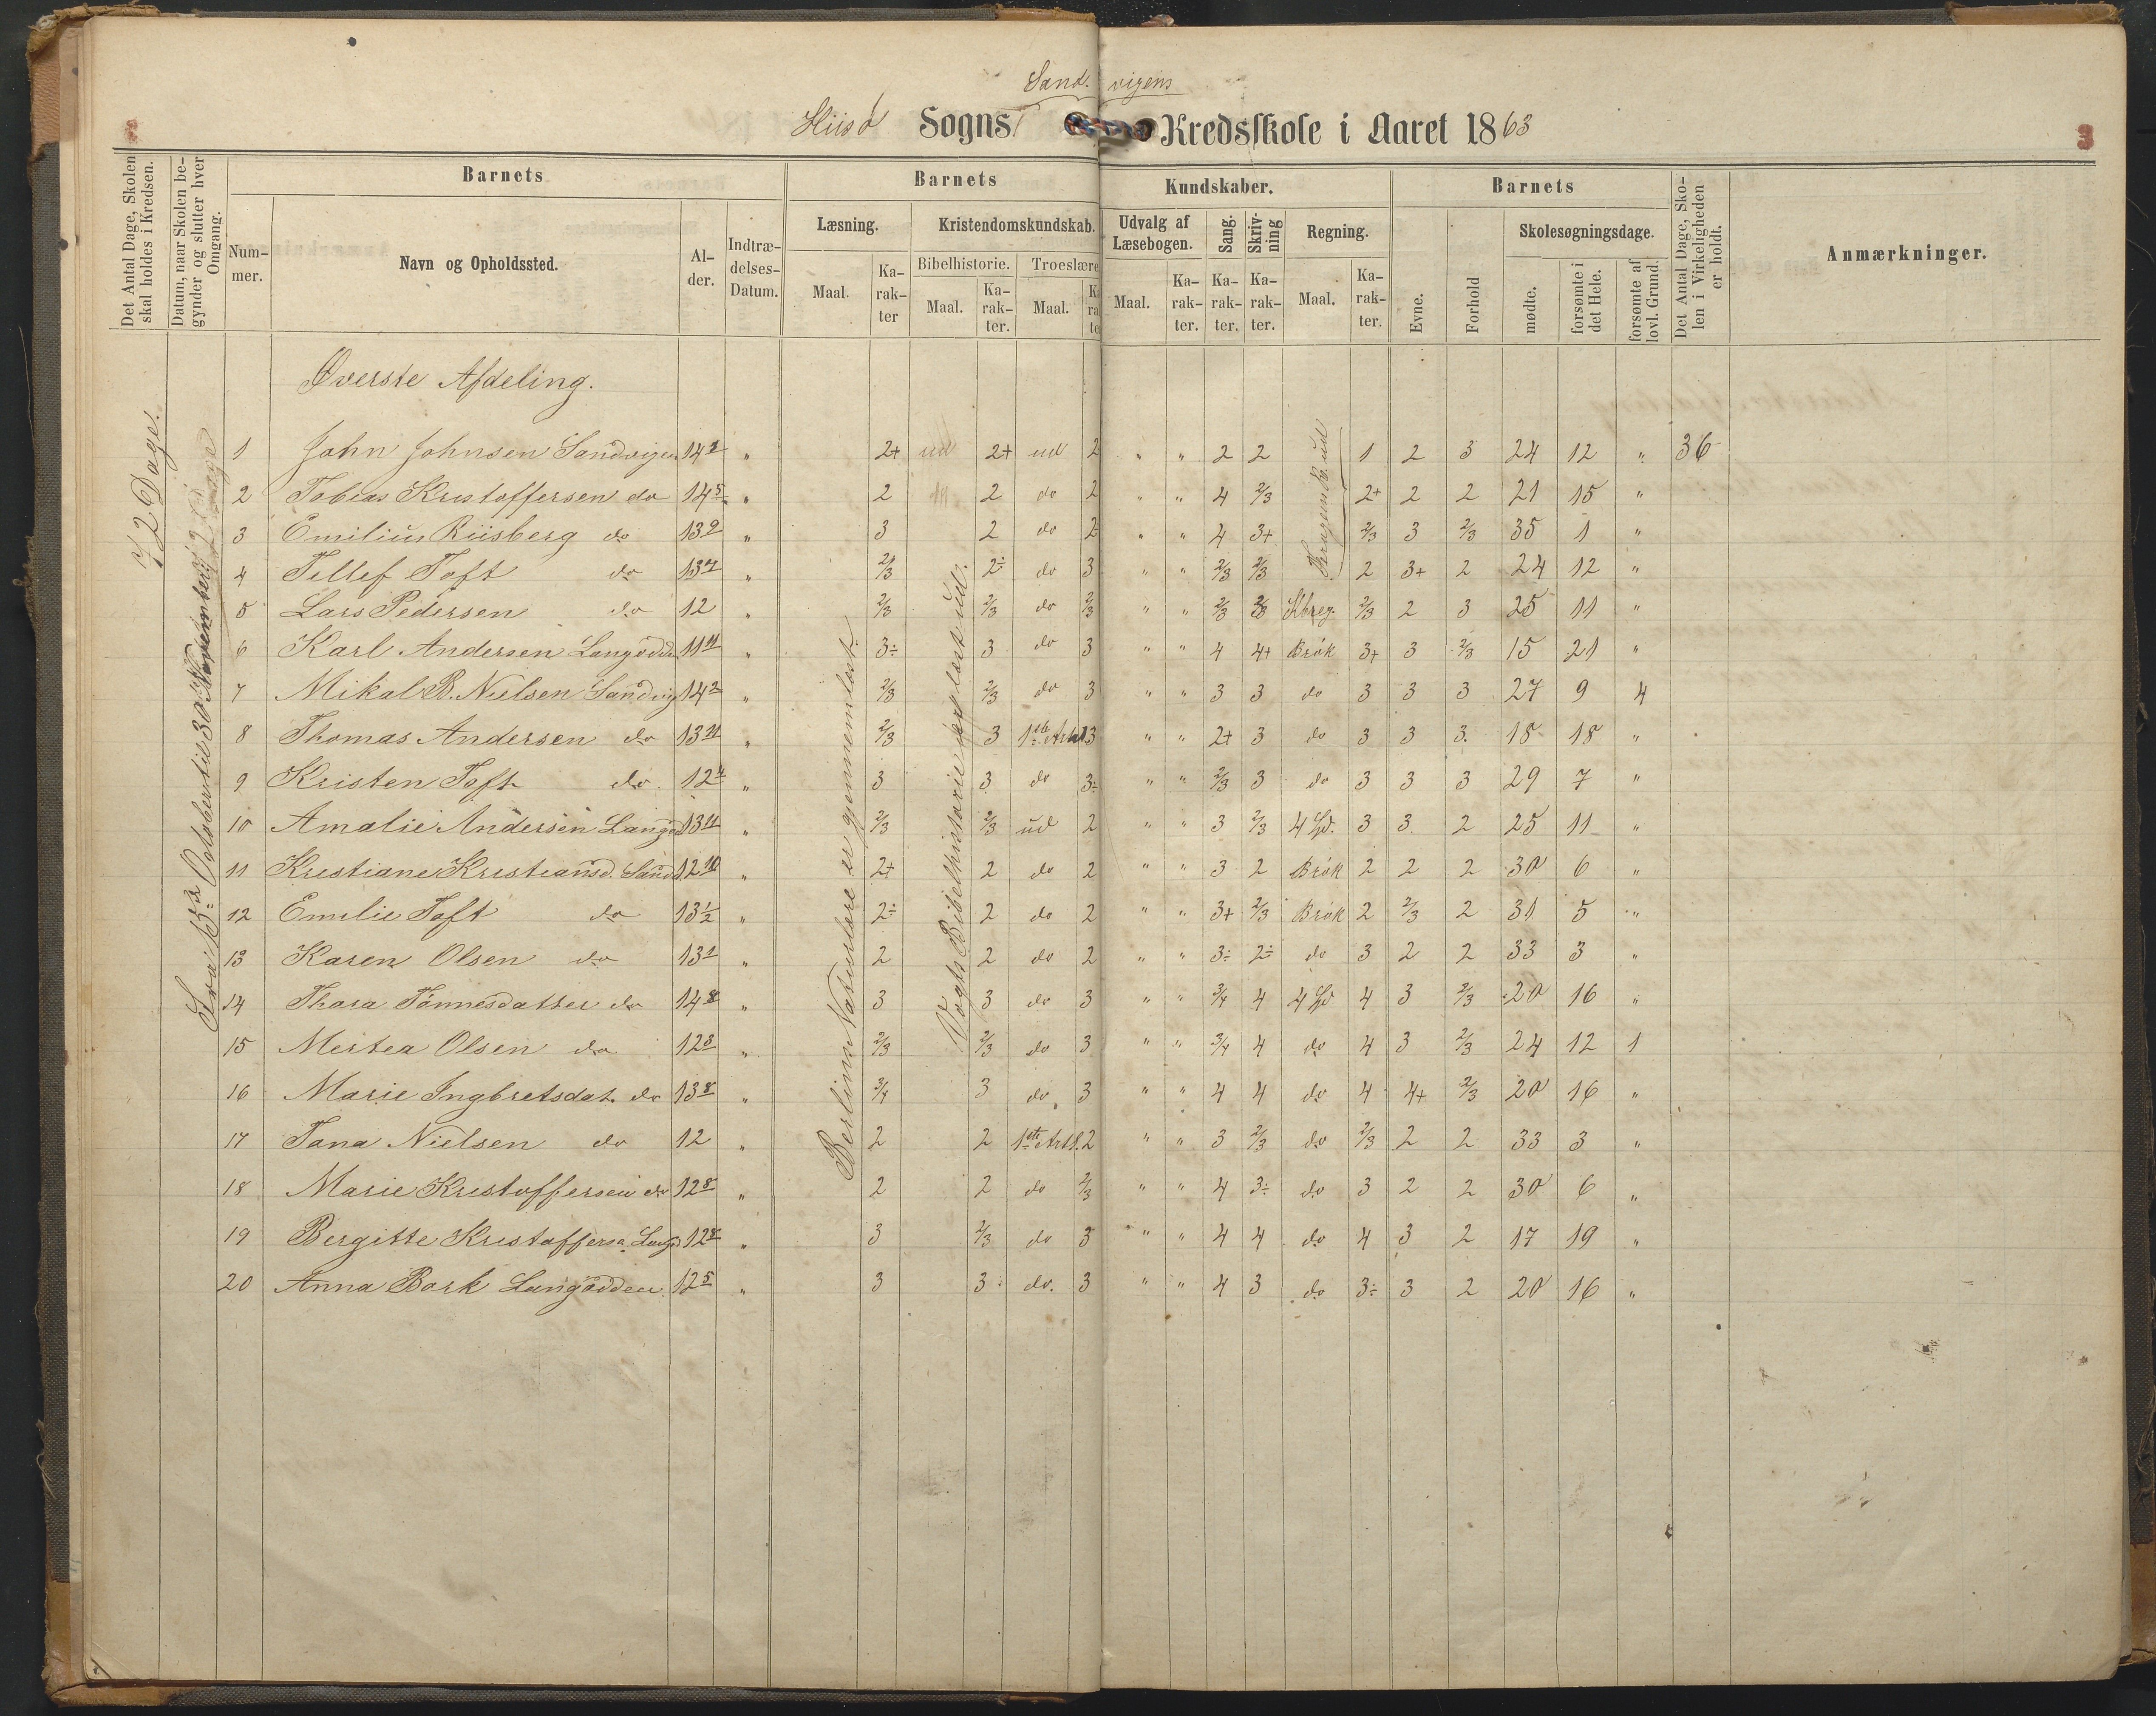 Sand vigens
Hiisö Sogns Kredsskole i Aaret 1863
3
Det Antal Dage, Skolen skal holdes i Kredsen.
Datum, naar Skolen begynder og slutter hver Omgang.
Barnets
Nummer.
Navn og Opholdssted.
Alder.
Indtrædelses-Datum.
Barnets
Kundskaber.
Læsning.
Maal.
Karakter
Kristendomskundskab.
Bibelhistorie.
Maal.
Karakter.
Troeslære
Maal.
Udvalg af Læsebogen.
Maal.
Karakter.
Sang.
Karakter.
Skrivning
Karakter.
Regning.
Maal.
Karakter.
Barnets
Evne.
Forhold
Skolesøgningsdage.
mødte.
forsømte i det Hele.
forsømte af lovl. Grund.
Det Antal Dage, Skolen i Virkeligheden er holdt.
Anmærkninger.
72 Dage.
Fra 13de October til 30 November
Øverste Afdeling.
Berlins Naturlære er gjennemlæst.
Vogts Bibelhistorie læst ud.
1 John Johnsen Sandvigen 14 " 2+ ud 2+ ud 2 " " 2 2 1 2 3 24 12 " 36
2 Tobias Kristoffersen do 14 5 " 2 2 do 2 " " 4 2/3 2+ 2 2 21 15 "
3 Emilius Riisberg do 13 9 " 3 2 do 2 " " 4 3+ 2/3 3 2/3 35 1 "
4 Tellef Toft do 13 7 " 2/3 2÷ do 3 " " 2/3 2/3 2 3+ 2 24 12 "
5 Lars Pedersen do 12 " 2/3 2/3 do 2/3 " " 2/3 3 2/3 2 3 25 11 "
6 Karl Andersen Langodden 11 11 " 3÷ 3 do 3 " " 4 4+ Brök 3+ 3 2/3 15 21 "
7 Mikal B. Nielsen Sandvig 14 2 " 2/3 2/3 do 3 " " 3 3 do 3 3 3 27 9 4
8 Thomas Andersen do 13 11 " 2/3 3 1ste Artkl 3 " " 2+ 3 do 3 3 3. 18 18 "
9 Kristen Toft do. 12 4 " 3 3 do 3÷ " " 2/3 3 do 3 3 3 29 7 "
10 Amalie Andersen Langod 13 11 " 2/3 2/3 ud 2 " " 3 2/3 3 3 2 25 11 "
11 Kristiane Kristiansd. Sandv. 12 10 " 2+ 2 do 2 " " 3 2 Brök 2 2 2 30 6 "
12 Emilie Toft do 13 1/2 " 2÷ 2 do 2 " " 3+ 2/3 Brök 2 2/3 2 31 5 "
13 Karen Olsen do 13 1 " 2 2 do 2 " " 3÷ 2÷ do 3 2 2 33 3 "
14 Thara Tönnesdatter do 14 8 " 3 3 do 3 " " 3/4 4 4 3 2/3 20 16 "
15 Mertea Olsen do 12 3 " 2/3 2/3 do 3 " " 3/4 4 do 4 3 2/3 24 12 1
16 Marie Ingbretsdat. do 13 8 " 3/4 3 do 3 " " 4 4 do 4 4+ 2/3 20 16 "
17 Tana Nielsen do 12 " 2 2 1ste Artk. 2 " " 3 2/3 do 2/3 2 2 33 3 "
18 Marie Kristoffersen do 12 8 " 2 2 do 2/3 " " 4 3÷ do 3 2 2 30 6 "
19 Bergitte Kristoffersn Langd 12 " 3 2/3 do 3 " " 4 4 do 4 3 2 17 19 "
20 Anna Bork Langodden 12 5 " 3 3 do. 3 " " 4 3 do 3÷ 3 2 20 16 "